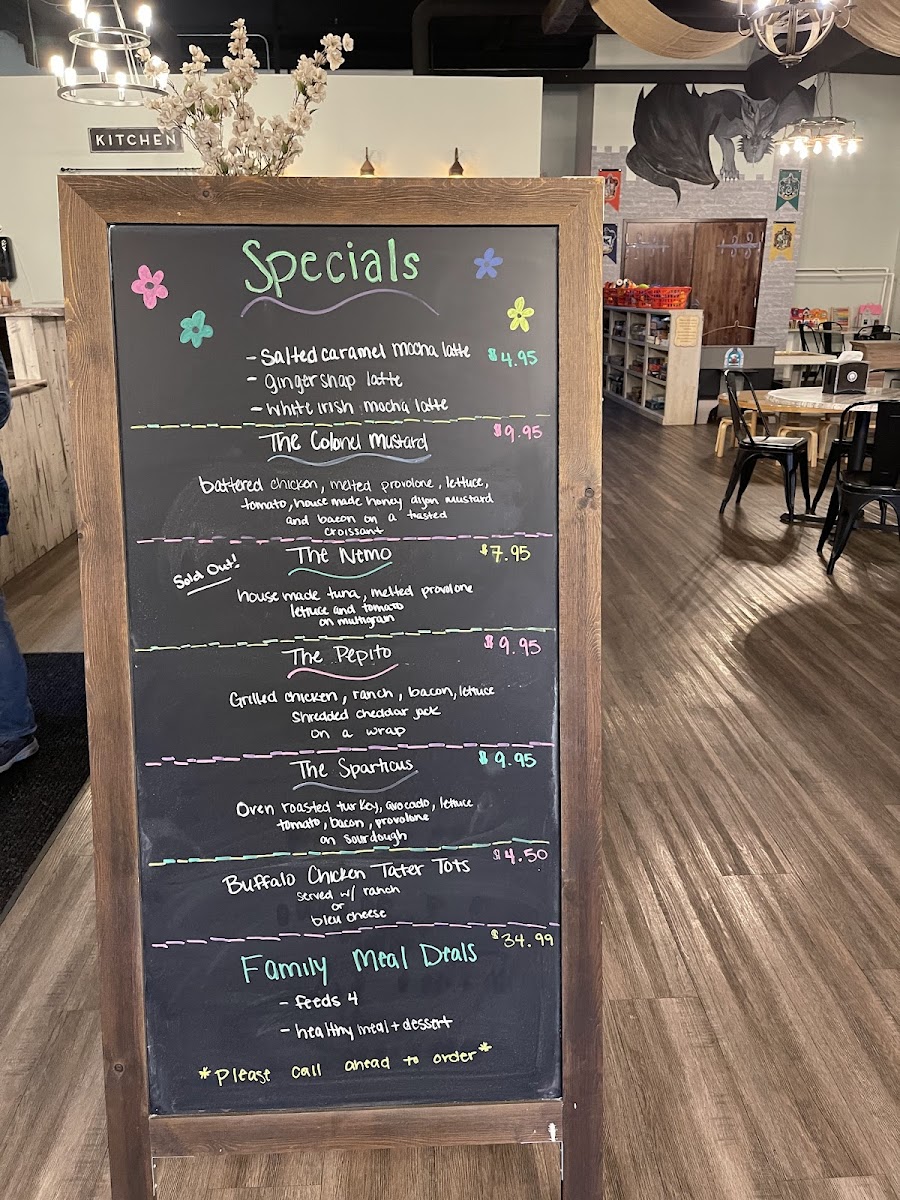 KITCHEN
Specials
- Salted caramel mocha latte $4.95
- gingersnap latte
- White irish mocha latte
The Colonel Mustard $9.95
battered chicken, melted provolone, lettuce,
tomato, house made honey dijon mustard
and bacon on a toasted
croissant
Sold Out! The Nemo $7.95
house made tuna, melted provolone
lettuce and tomato
on multigrain
The Pepito $9.95
Grilled chicken, ranch, bacon, lettuce
Shredded cheddar jack
on a wrap
The Sparticus $9.95
Oven roasted turkey, avocado, lettuce
tomato, bacon, provolone
on sourdough
Buffalo Chicken Tater Tots $4.50
served w/ ranch
or
bleu cheese
Family Meal Deals $34.99
- feeds 4
- healthy meal + dessert
*Please call ahead to order*